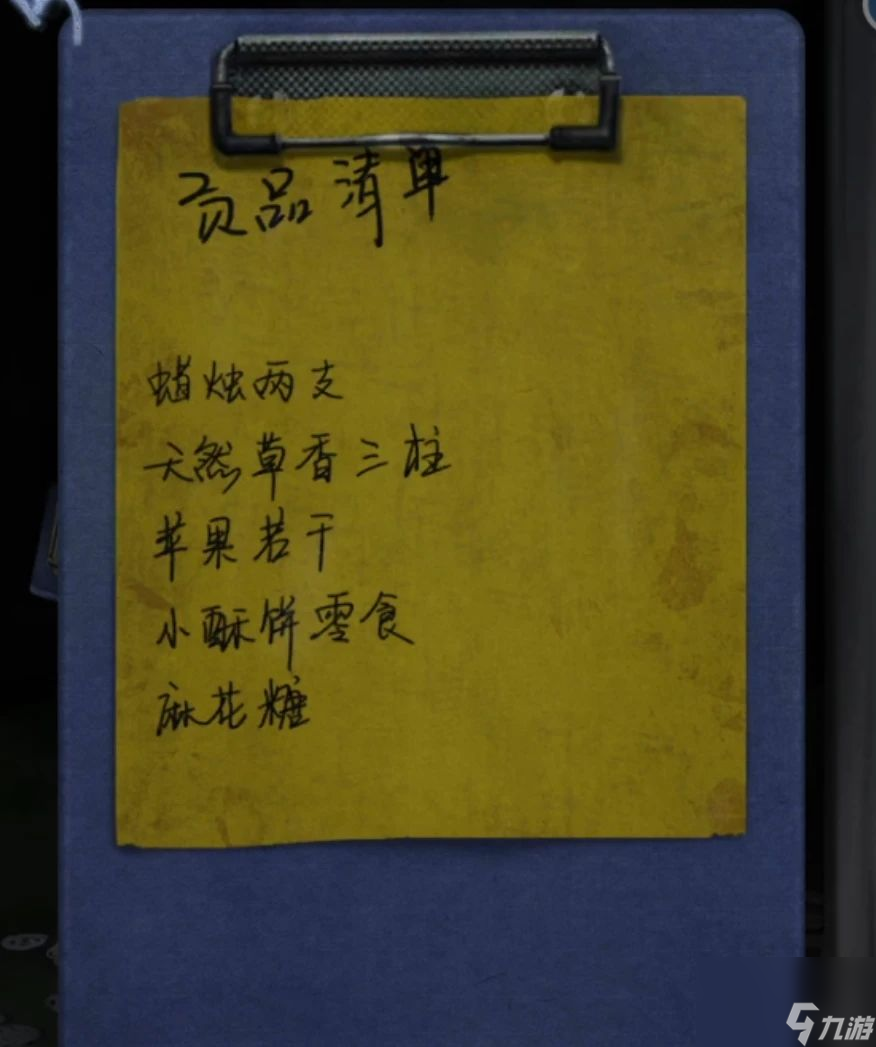 贡品清单
蜡烛两支
天然草香三柱
苹果若干
小酥饼零食
麻花糖
九游